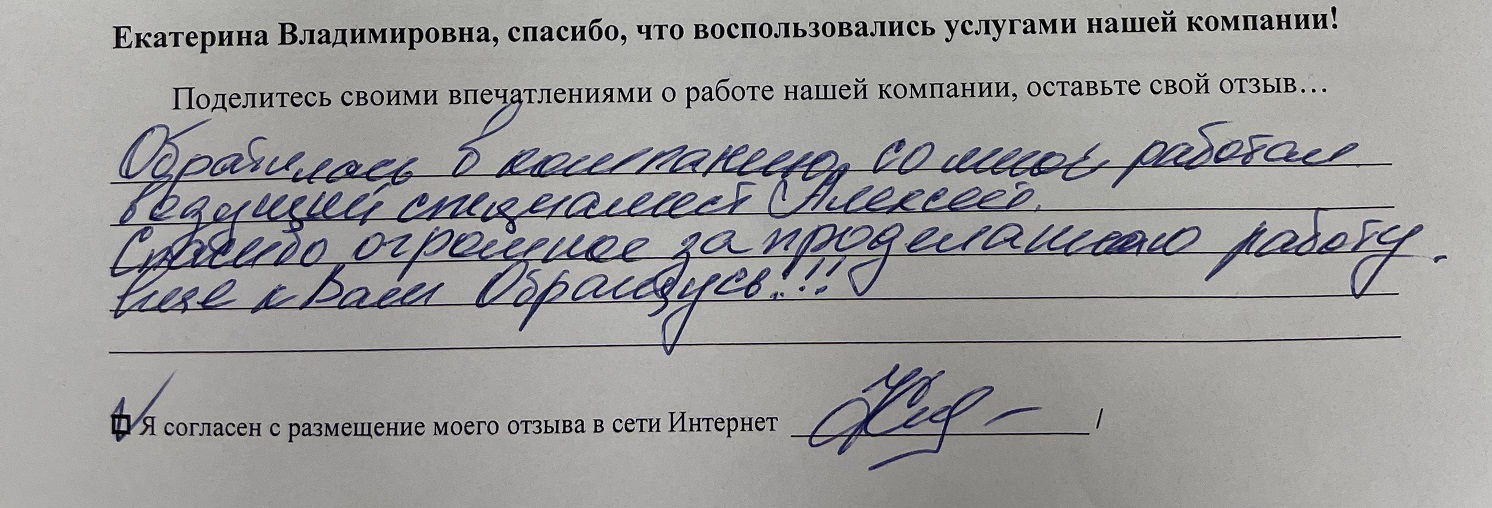 Екатерина Владимировна, спасибо, что воспользовались услугами нашей компании!
Поделитесь своими впечатлениями о работе нашей компании, оставьте свой отзыв…
Обратилась в компанию, со мной работал
ведущий специалист Алексей.
Спасибо огромное за проделанную работу.
еще к Вам Обращусь!!!
Я согласен с размещение моего отзыва в сети Интернет /